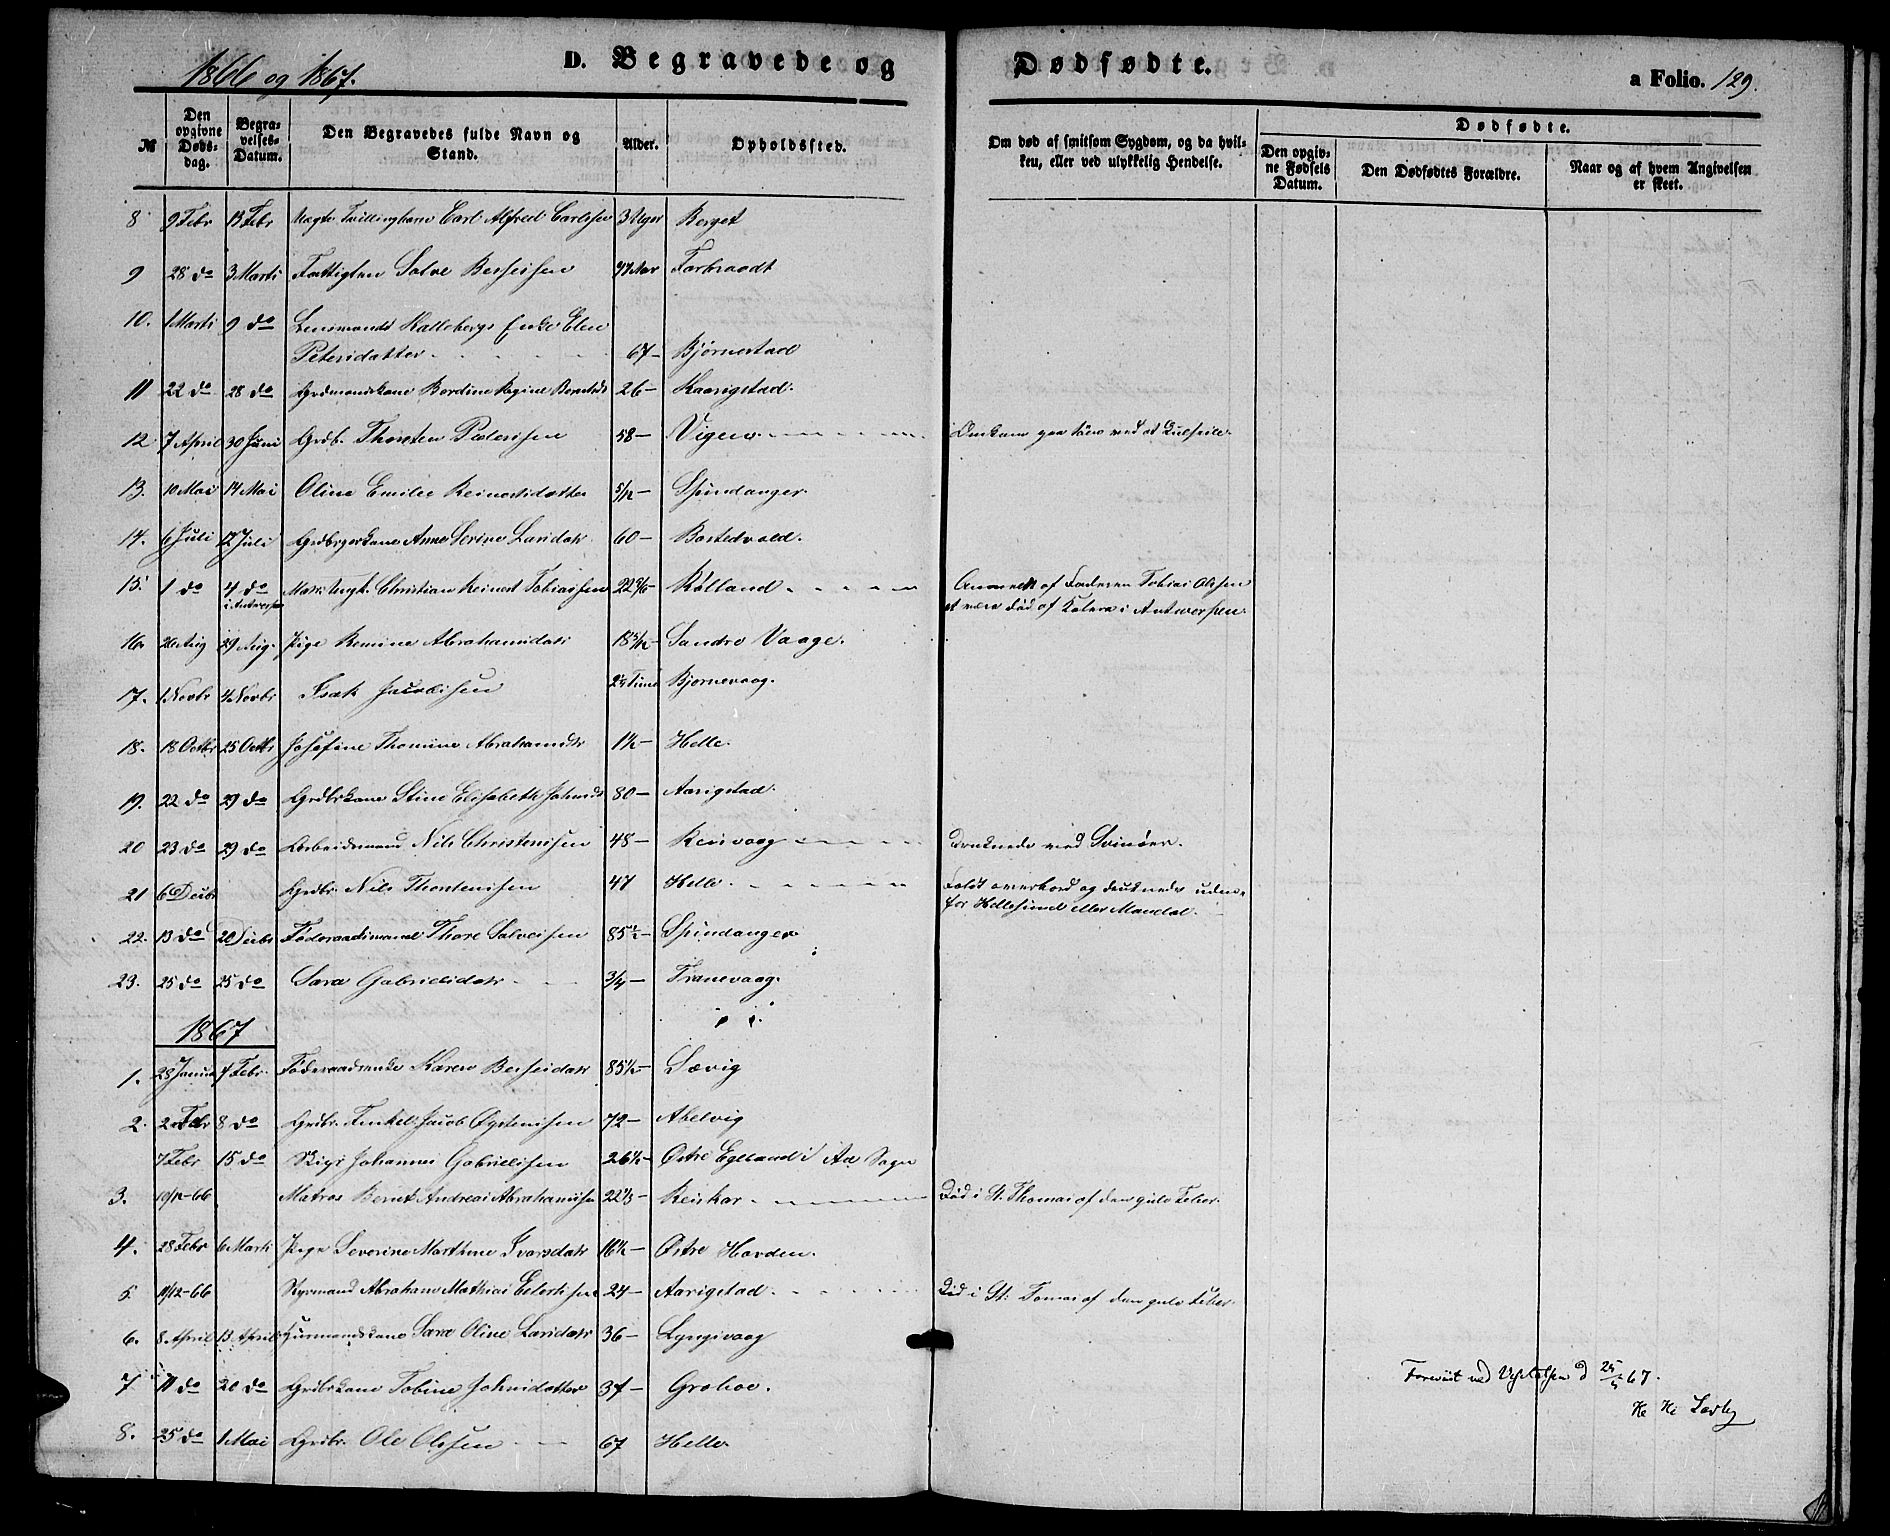 1866 og 1867.
D. Begravede og Dødfødte.
a Folio. 129.
№
Den opgivne Døds-dag.
Begra-velses-Datum.
Den Begravedes fulde Navn og Stand.
Alder.
Opholdsted.
Om død af smitsom Sygdom, og da hvil-ken, eller ved ulykkelig Hendelse.
Dødfødte.
Den opgiv-ne Fødsels Datum.
Den Dødfødtes Forældre.
Naar og af hvem Angivelsen er skeet.
8 9 Febr 13 Febr Uægte Tvillingbarn Carl Alfred Carlsen 3 Uger Berget
9 28 do 3 Marti Fattiglem Salve Berseisen 47 Aar Farbrodt
10. 1 Marti 9 do Lensmands Kallebergs Enke Elen
Petersdatter 67 - Bjørnestad
11 22 do 28 do Grdmandskone Bordine Regine Berntsdt 26 - Kaarigstad.
12 7 April 30 Juni Grdb. Thorsten Pedersen 58 - Vigen. Omkom paa Søen ved at kulseile.
13. 10 Mai 14 Mai Oline Emilie Reinertsdatter 5/12 - Spindanger
14. 6 Juli 12 Juli Grdbrgerkone Anne Serine Larsdatr 60 - Bastedvold.
15. 1 do 4 do i Antwerpen Christian Reinert Tobiassen 22 Rølland Anmeldt af Faderen Tobias Olsen
at være død af Kolera i Antwerpen.
16. 29 Aug. Pige Remine Abrahamsdatr Sandre Vaage.
17. 1 Novbr 4 Novbr Isak Jacobsen 2½ Time Bjørnevaag.
18. 18 Octbr 25 Octbr Josefine Thomine Abrahamsdtr 1½ - Helle.
19. 22 do 29 do Grdbrkone Stine Elisabeth Johnsdt 80 - Aarigstad.
20 23 do 29 do Arbeidsmand Nils Christensen 48 - Reisvaag Druknede ved Svinøer.
21 6 Decbr Grdbr. Nils Thorstensen 47 Helle. Faldt overbord og druknede uden-
for Hellesund eller Mandal.
22. 13 do 20 Decbr Føderaadsmand Thore Salvesen 85½ - Spindanger
23. 25 do 25 do Sara Gabrielsdatr 3/4 - Tranevaag.
1867
1. 28 Januar 4 Febr. Føderaadsenke Karen Berseisdatr 85½ - Sævig
2. 2 Febr 8 do Grdbr. Jacob Øystensen 72 - Ahelvig
7 Febr 15 do Johannes Gabrielsen 26½ - Østre Egeland i Aa Sogn
3. 19/12-66 Matros Bernt Andreas Abrahamsen 22 Reiskar Død i St. Thomas af den gule Feber.
4. 28 Febr 6 Marti Pige Severine Marthine Ivarsdatr 16½ - Østre Haarden.
5. 11/12-66 Styrmand Abraham Mathias Eilertsen 24 - Aarigstad. Død i St. Tomas af den gule Feber.
6. 8 April 13 April Sara Oline Larsdatr 36 - Lyngsvaag
7 11 do 20 do Grdbrkone Tobine Johnsdatter 37 - Grøboe.
8. 25 do 1 Mai Grdbr. Ole Olssen 67 Helle
Foreviist ved Visitatsen d 25/5 67.